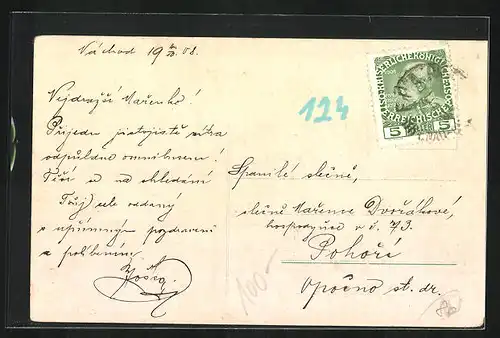 Náchod 19 08.
Nejdražší Mařenko!
Přijedu zítra
odpůldne omnibusem!
Těší se na shledání
Tvůj cele oddaný
s upřímným pozdravem
a políbením
124
KAISERLICHE KÖNIGLICHE
ÖSTERREICHISCHE
5 5
Spanilé slečně,
slečně Mařence Dvořákové,
hospodyně v č. 73.
Pohoří
Opočno st. dr.
100-